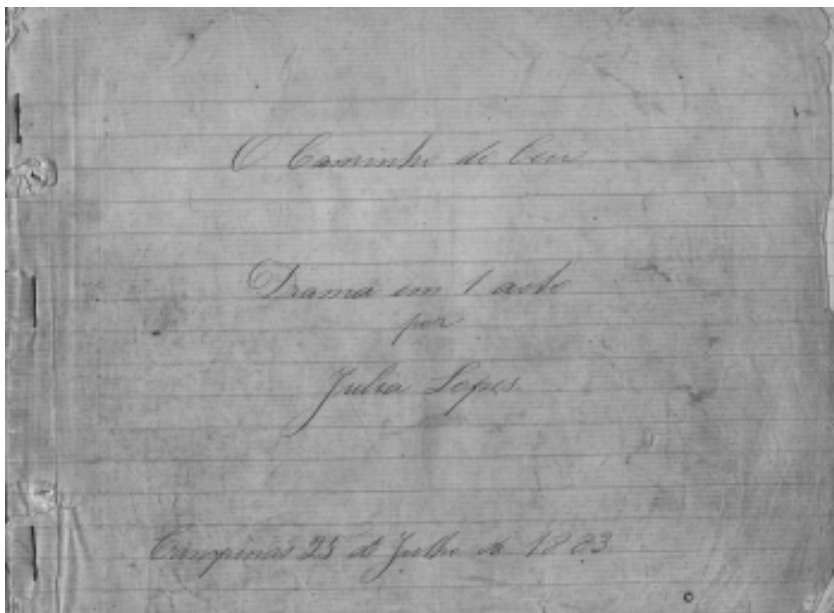 O Caminho do Ceu
Drama em 1 acto
por
Julia Lopes
Campinas 25 de Julho de 1883